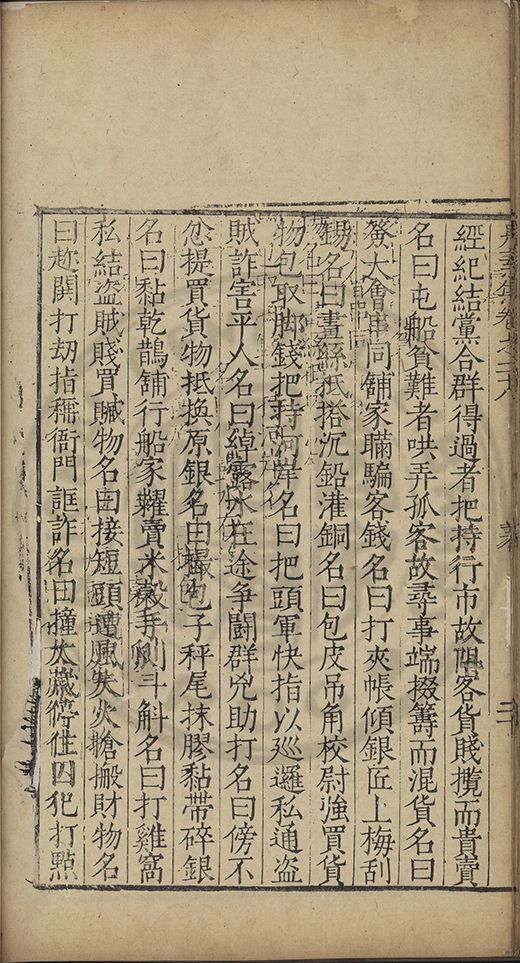 經紀結黨合群得過者把持行市故阻客貨賤攬而貴賣
名曰屯船貧難者哄弄孤客故尋事端掇籌而混貨名曰
大會串同舖家瞞騙客錢名曰打夾帳傾銀匠上梅刮
錫名曰畫絲抵搭沉鉛灌銅名曰包皮吊角校尉強買貨
物包取脚錢把持河岸名曰把頭軍快指以巡邏私通盜
賊詐害平人名曰綽露水在途争鬪群兇助打名曰傍不
忿提買貨物抵換原銀名曰撮包子秤尾抹膠黏帶碎銀
名曰黏乾鵲舖行船家糶賣米穀手側斗斛名曰打雞窩
私結盜賊賤買贓物名曰接短頭遭風失火搶搬財物名
曰趂閧打劫指稱衙門誆詐名曰撞太歲停住囚犯打點